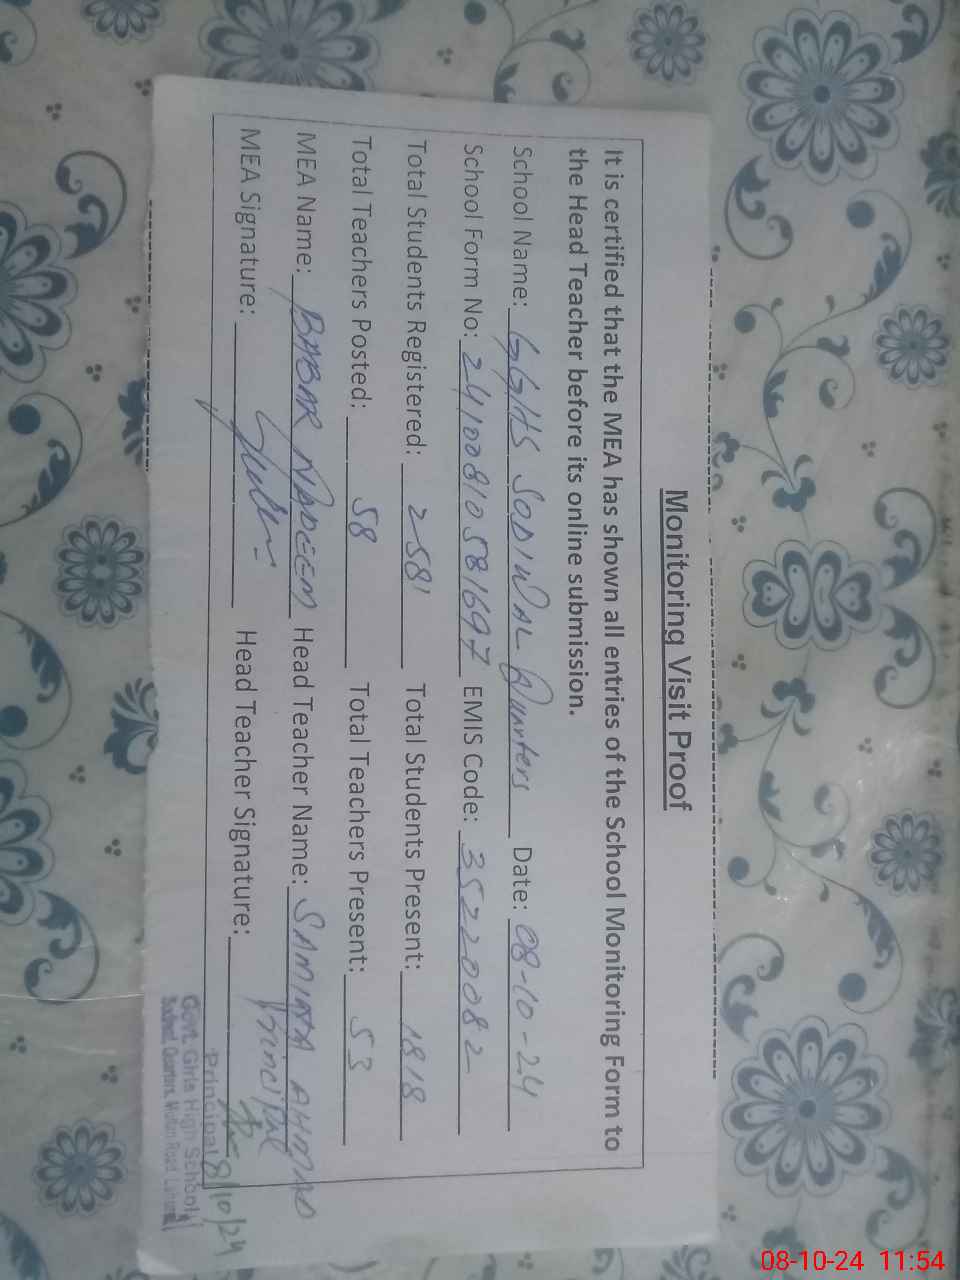 Monitoring Visit Proof
It is certified that the MEA has shown all entries of the School Monitoring Form to
the Head Teacher before its online submission.
School Name: GGHS SODIWAL Quarters Date: 08-10-24
School Form No: 24100810581697 EMIS Code: 35220082
Total Students Registered: 2581 Total Students Present: 1818
Total Teachers Posted: 58 Total Teachers Present: 53
MEA Name: BABAR NADEEM Head Teacher Name: SAMINA AHMAD
Principal
MEA Signature: Head Teacher Signature:
8/10/24
Principal
Govt. Girls High School
Quarters, Multan Road, Lahore
08-10-24 11:54